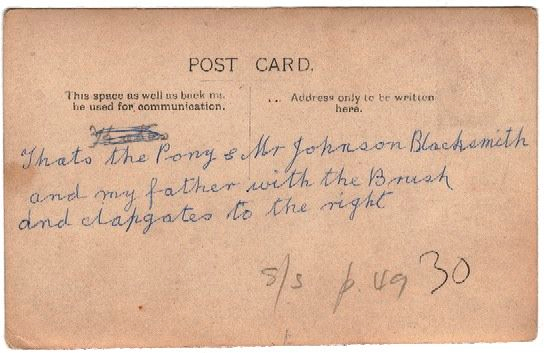 POST CARD.
This space as well as back may be used for communication.
Address only to be written here.
Thats the Pony & Mr Johnson Blacksmith
and my father with the Brush
and clapgates to the right
S/S p. 49 30